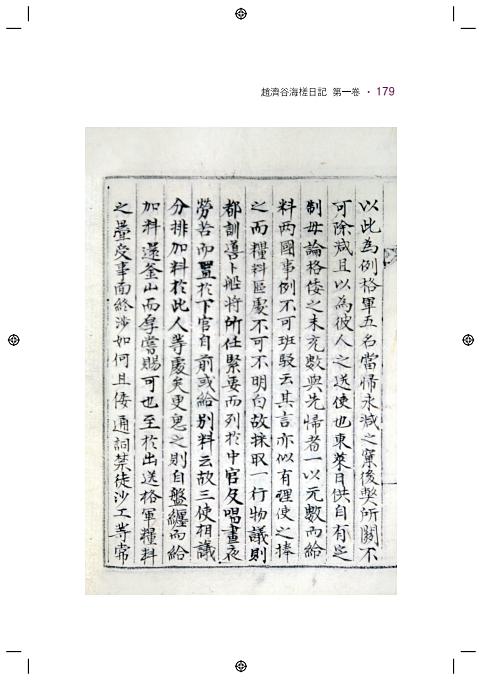 趙濟谷海槎日記 第一卷 · 179
以此為例格軍五名當歸永減之窠後弊所關不
可除減且以為彼人之送使也東萊日供自有定
制毋論格倭之未充數與先歸者一以元數而給
料兩國事例不可班駁云其言亦似有理使之捧
之而糧料區處不可不明白故採取一行物議則
都訓導卜船將所任緊要而列於中官及唱晝夜
勞苦而置於下官自前或給別料云故三使相議
分排加料於此人等處矣更思之則自盤纏而給
加料還釜山而厚嘗賜可也至於出送格軍糧料
之疊受事面終涉如何且倭通詞禁徒沙工等常